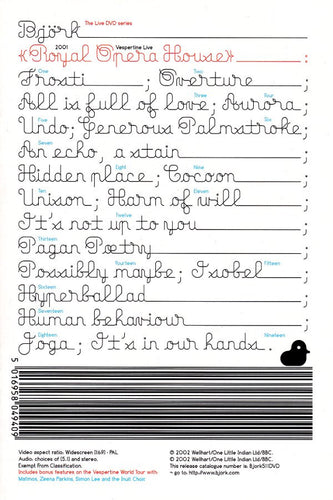 Björk The Live DVD series
2001 Vespertine Live
«Royal Opera House» :
One Two
Frosti ; Overture ;
Three Four
All is full of love; Aurora;
Five Six
Undo; Generous Palmstroke;
Seven
An echo, a stain ;
Eight Nine
Hidden place; Cocoon ;
Ten Eleven
Unison ; Harm of will ;
Twelve
It's not up to you ;
Thirteen
Pagan Poetry ;
Fourteen Fifteen
Possibly maybe; Isobel ;
Sixteen
Hyperballad ;
Seventeen
Human behaviour ;
Eighteen Nineteen
Joga; It's in our hands.
5 016958 049409
Video aspect ratio: Widescreen (16:9) - PAL
Audio: choices of (5.1) and stereo.
Exempt from Classification.
Includes bonus features on the Vespertine World Tour with
Matmos, Zeena Parkins, Simon Lee and the Inuit Choir
℗ 2002 Wellhart/One Little Indian Ltd/BBC.
© 2002 Wellhart/One Little Indian Ltd/BBC.
This release catalogue number is Bjork511DVD
- go to: www.bjork.com